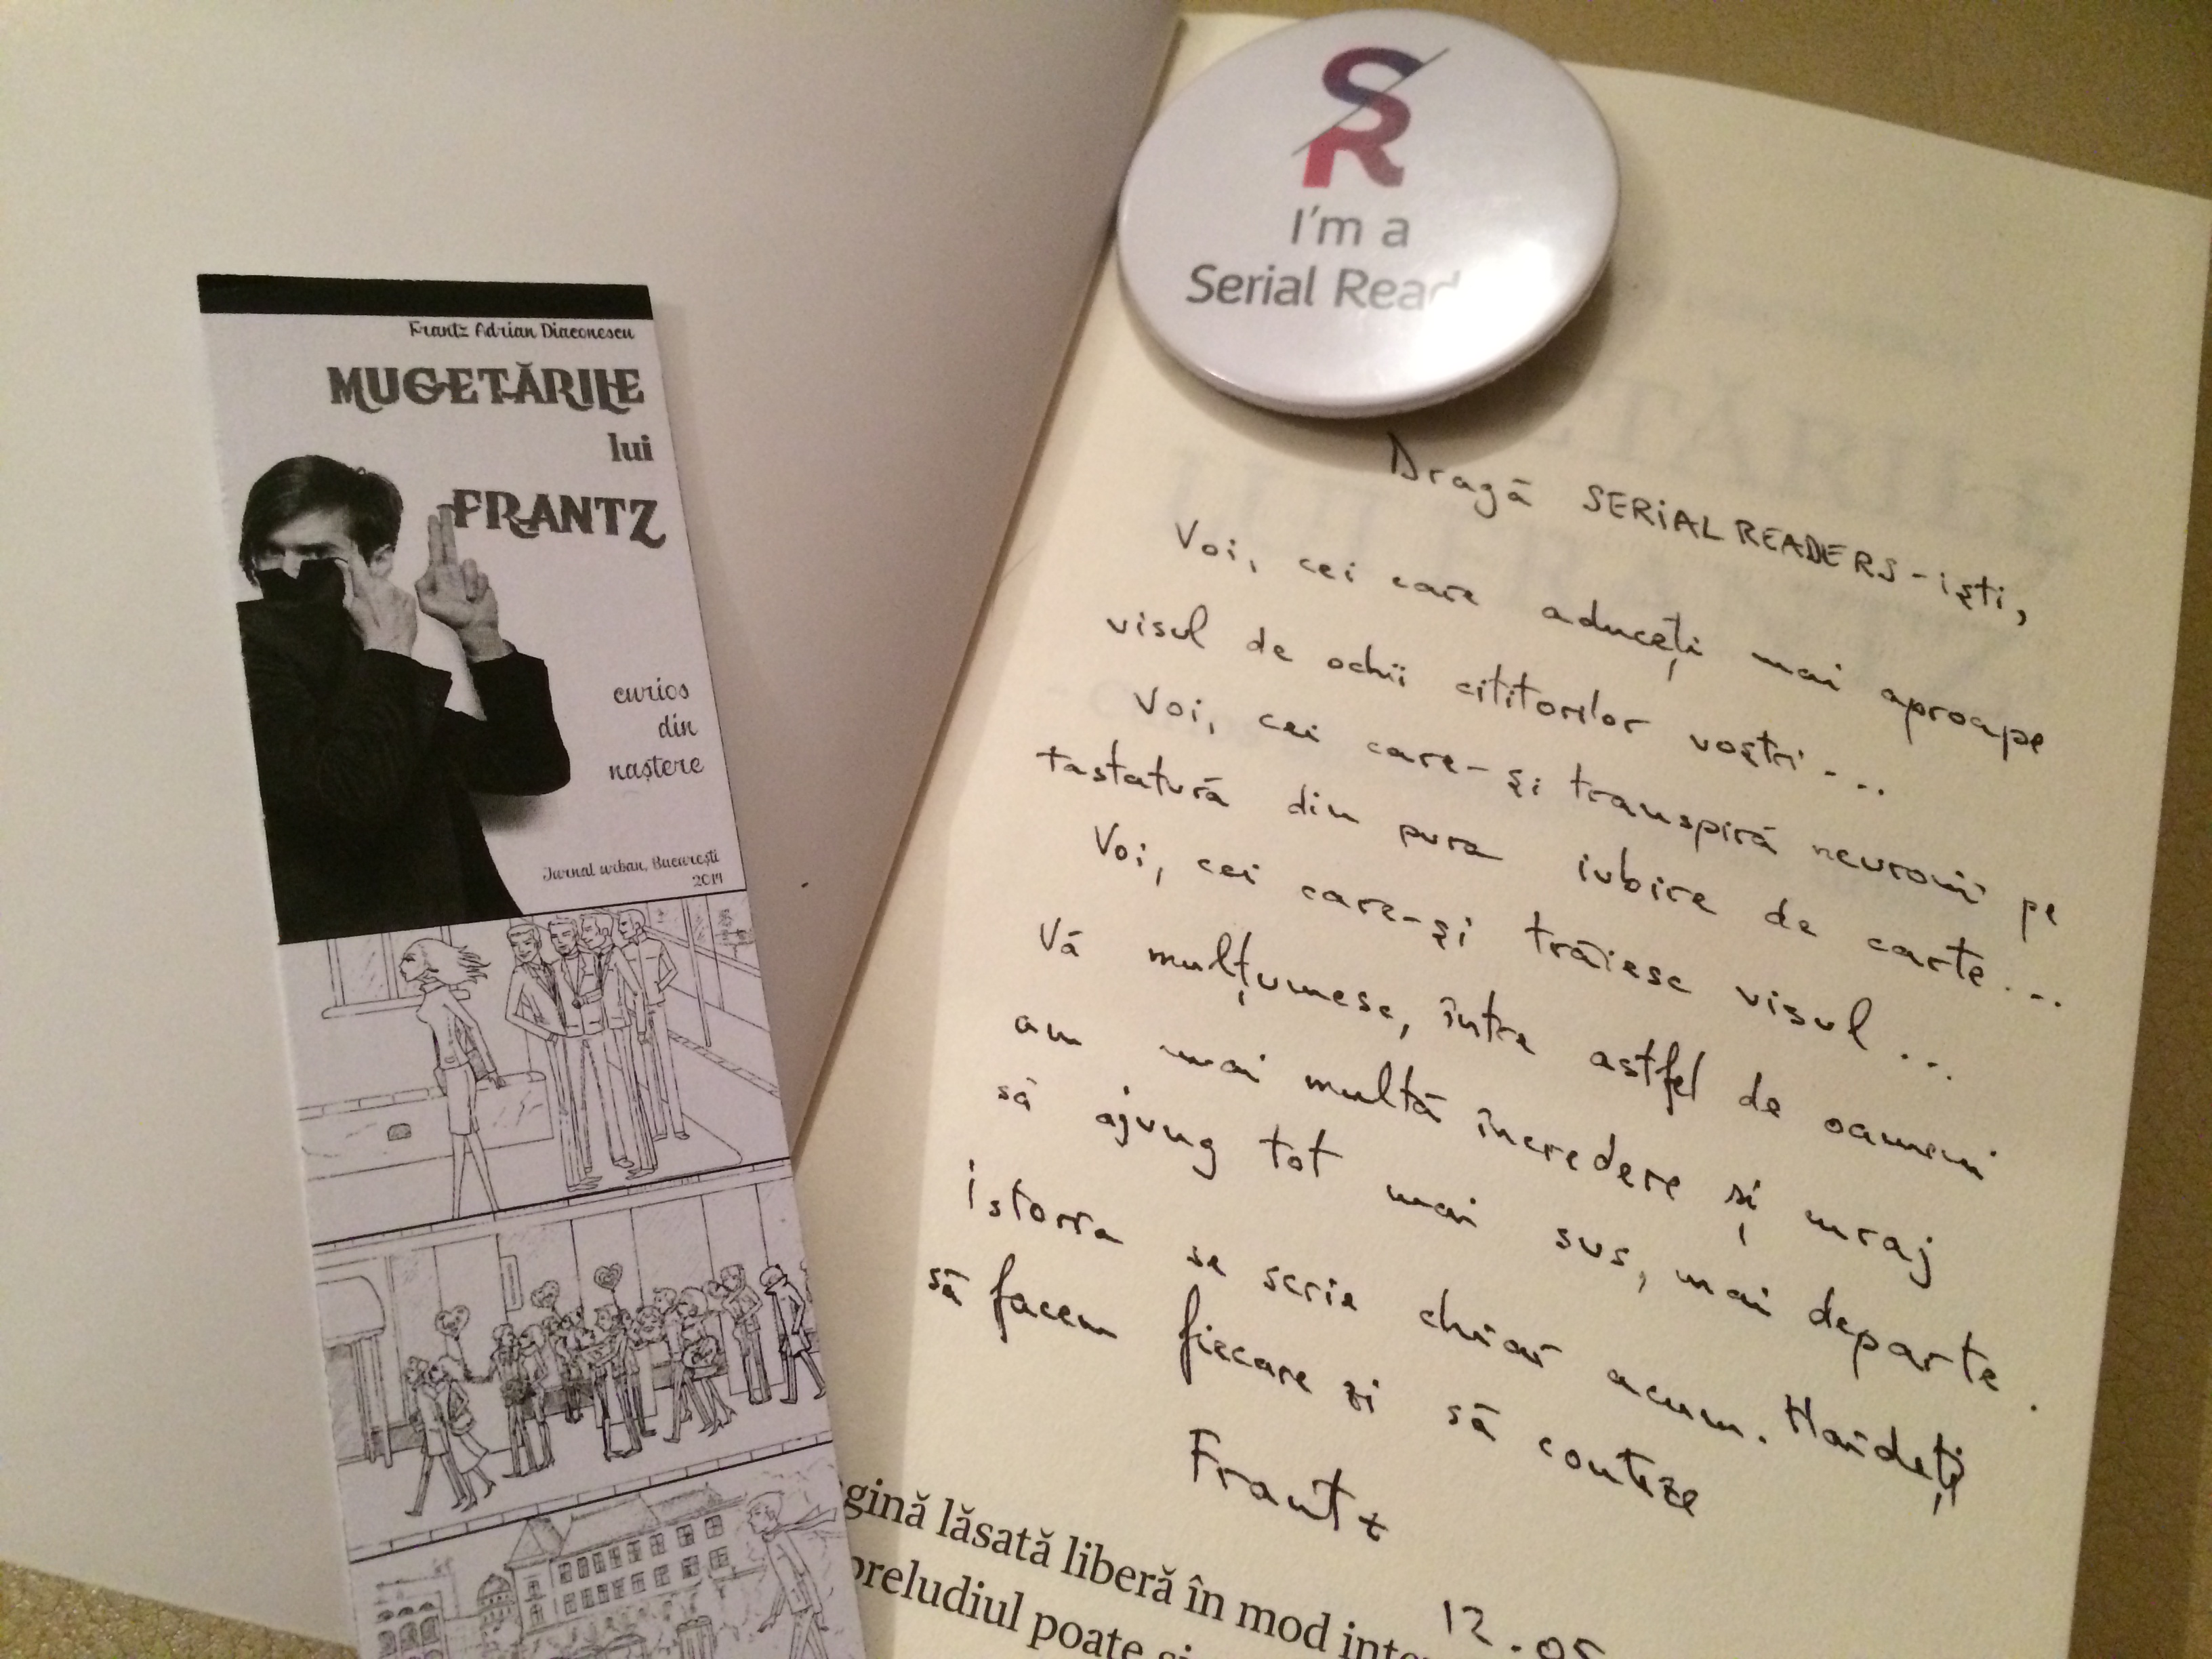 Frantz Adrian Diaconescu
MUGETĂRILE
lui
FRANTZ
curios
din
naștere
Jurnal urban, București
2014
SR
I'm a
Serial Read
Dragă SERiAL READERS-iști,
Voi, cei care aduceți mai aproape
visul de ochii cititorilor voștri...
Voi, cei care-și transpiră neuronii pe
tastatură din pura iubire de carte...
Voi, cei care-și trăiesc visul...
Vă mulțumesc, între astfel de oameni
am mai multă încredere și curaj
să ajung tot mai sus, mai departe.
Istoria se scrie chiar acum. Haideți
să facem fiecare zi să conteze
Frantz
12.05
gină lăsată liberă în mod inte
preludiul poate și